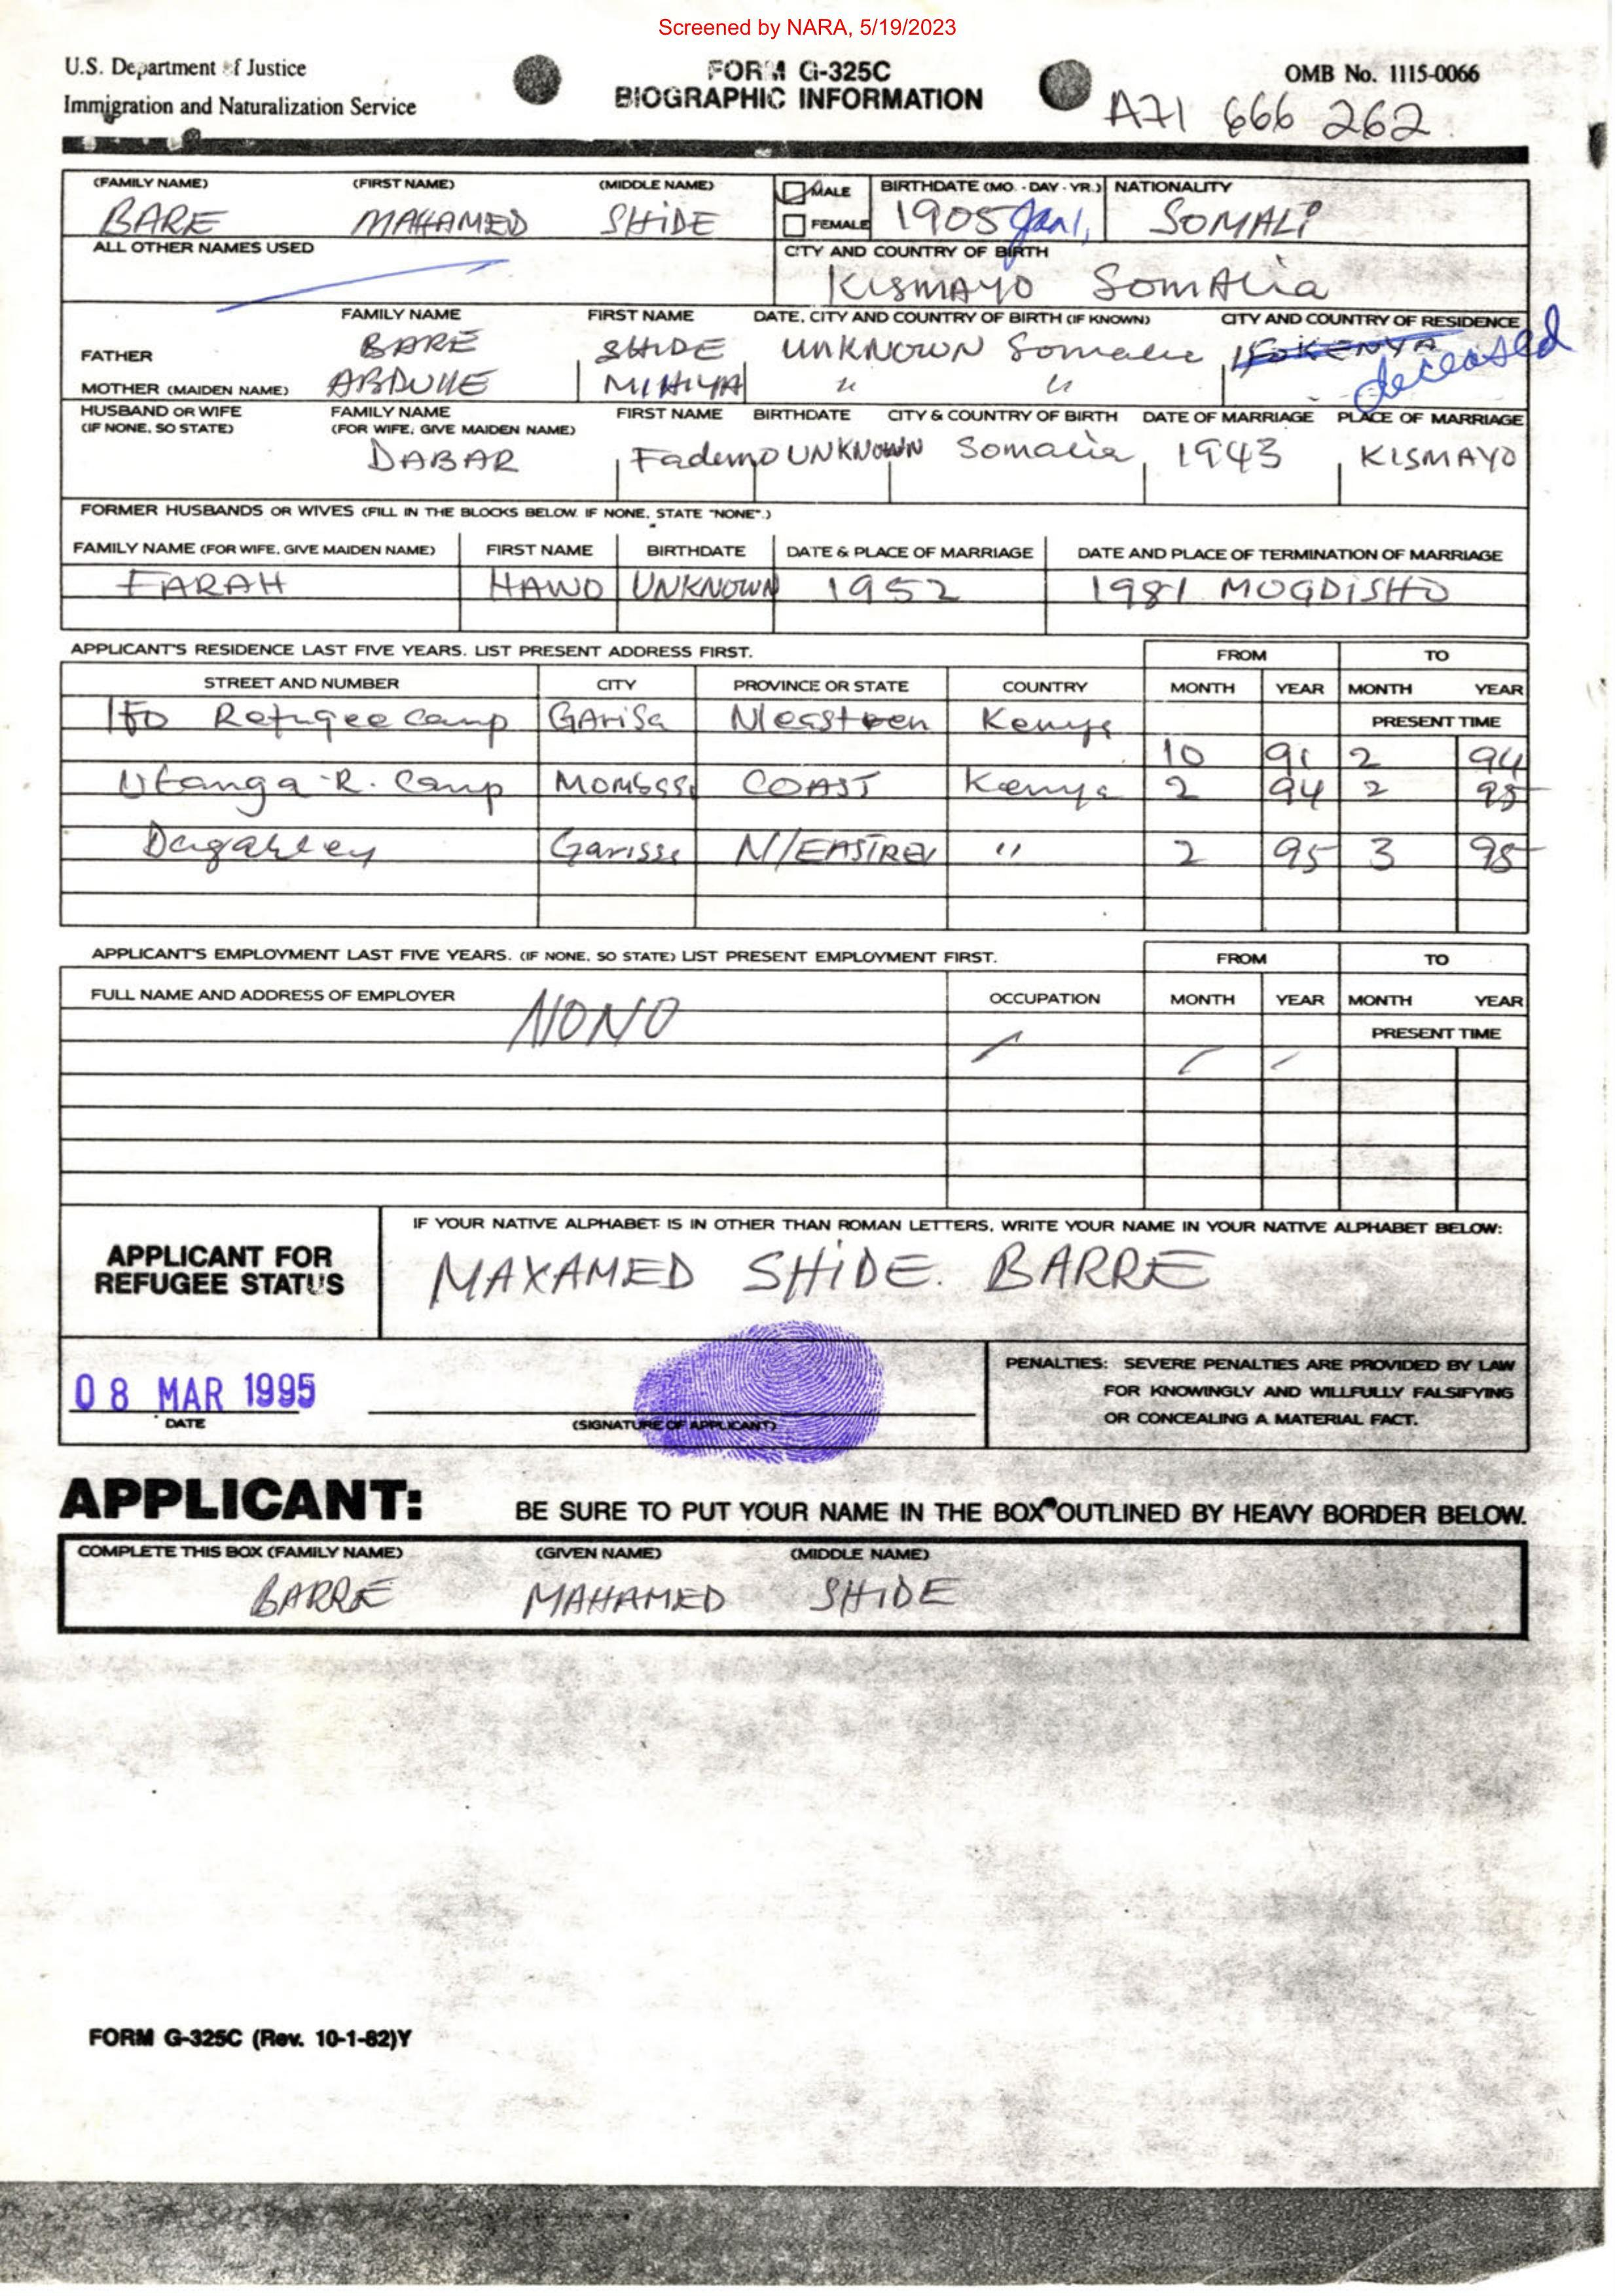 Screened by NARA, 5/19/2023
U.S. Department of Justice
Immigration and Naturalization Service
FORM G-325C
BIOGRAPHIC INFORMATION
OMB No. 1115-0066
A71 666 262
(FAMILY NAME) (FIRST NAME) (MIDDLE NAME) MALE BIRTHDATE (MO. - DAY - YR.) NATIONALITY
BARE MAHAMED SHIDE FEMALE 1905 Jan 1, SOMALI
ALL OTHER NAMES USED CITY AND COUNTRY OF BIRTH
KISMAYO SOMALia
FAMILY NAME FIRST NAME DATE, CITY AND COUNTRY OF BIRTH (IF KNOWN) CITY AND COUNTRY OF RESIDENCE
FATHER BARE SHIDE UNKNOWN Somalia IFO KENYA deceased
MOTHER (MAIDEN NAME) ABDULLE MIHIYA " "
HUSBAND OR WIFE FAMILY NAME FIRST NAME BIRTHDATE CITY & COUNTRY OF BIRTH DATE OF MARRIAGE PLACE OF MARRIAGE
(IF NONE, SO STATE) (FOR WIFE, GIVE MAIDEN NAME)
DABAR Fadumo UNKNOWN Somalia 1943 KISMAYO
FORMER HUSBANDS OR WIVES (FILL IN THE BLOCKS BELOW. IF NONE, STATE "NONE".)
FAMILY NAME (FOR WIFE, GIVE MAIDEN NAME) FIRST NAME BIRTHDATE DATE & PLACE OF MARRIAGE DATE AND PLACE OF TERMINATION OF MARRIAGE
FARAH HAWO UNKNOWN 1952 1981 MOGDISHO
APPLICANT'S RESIDENCE LAST FIVE YEARS. LIST PRESENT ADDRESS FIRST. FROM TO
STREET AND NUMBER CITY PROVINCE OR STATE COUNTRY MONTH YEAR MONTH YEAR
PRESENT TIME
IFO Refugee Camp GARiSa N/eastren Kenya 10 91 2 94
Utanga R. Camp MOMBSSA COAST Kenya 2 94 2 95
Dagahley Garissa N/EASTREN " 2 95 3 95
APPLICANT'S EMPLOYMENT LAST FIVE YEARS. (IF NONE, SO STATE) LIST PRESENT EMPLOYMENT FIRST. FROM TO
FULL NAME AND ADDRESS OF EMPLOYER OCCUPATION MONTH YEAR MONTH YEAR
NONO PRESENT TIME
IF YOUR NATIVE ALPHABET IS IN OTHER THAN ROMAN LETTERS, WRITE YOUR NAME IN YOUR NATIVE ALPHABET BELOW:
APPLICANT FOR
REFUGEE STATUS
MAXAMED SHIDE. BARRE
08 MAR 1995
DATE
(SIGNATURE OF APPLICANT)
PENALTIES: SEVERE PENALTIES ARE PROVIDED BY LAW
FOR KNOWINGLY AND WILLFULLY FALSIFYING
OR CONCEALING A MATERIAL FACT.
APPLICANT: BE SURE TO PUT YOUR NAME IN THE BOX OUTLINED BY HEAVY BORDER BELOW.
COMPLETE THIS BOX (FAMILY NAME) (GIVEN NAME) (MIDDLE NAME)
BARRE MAHAMED SHIDE
FORM G-325C (Rev. 10-1-82)Y